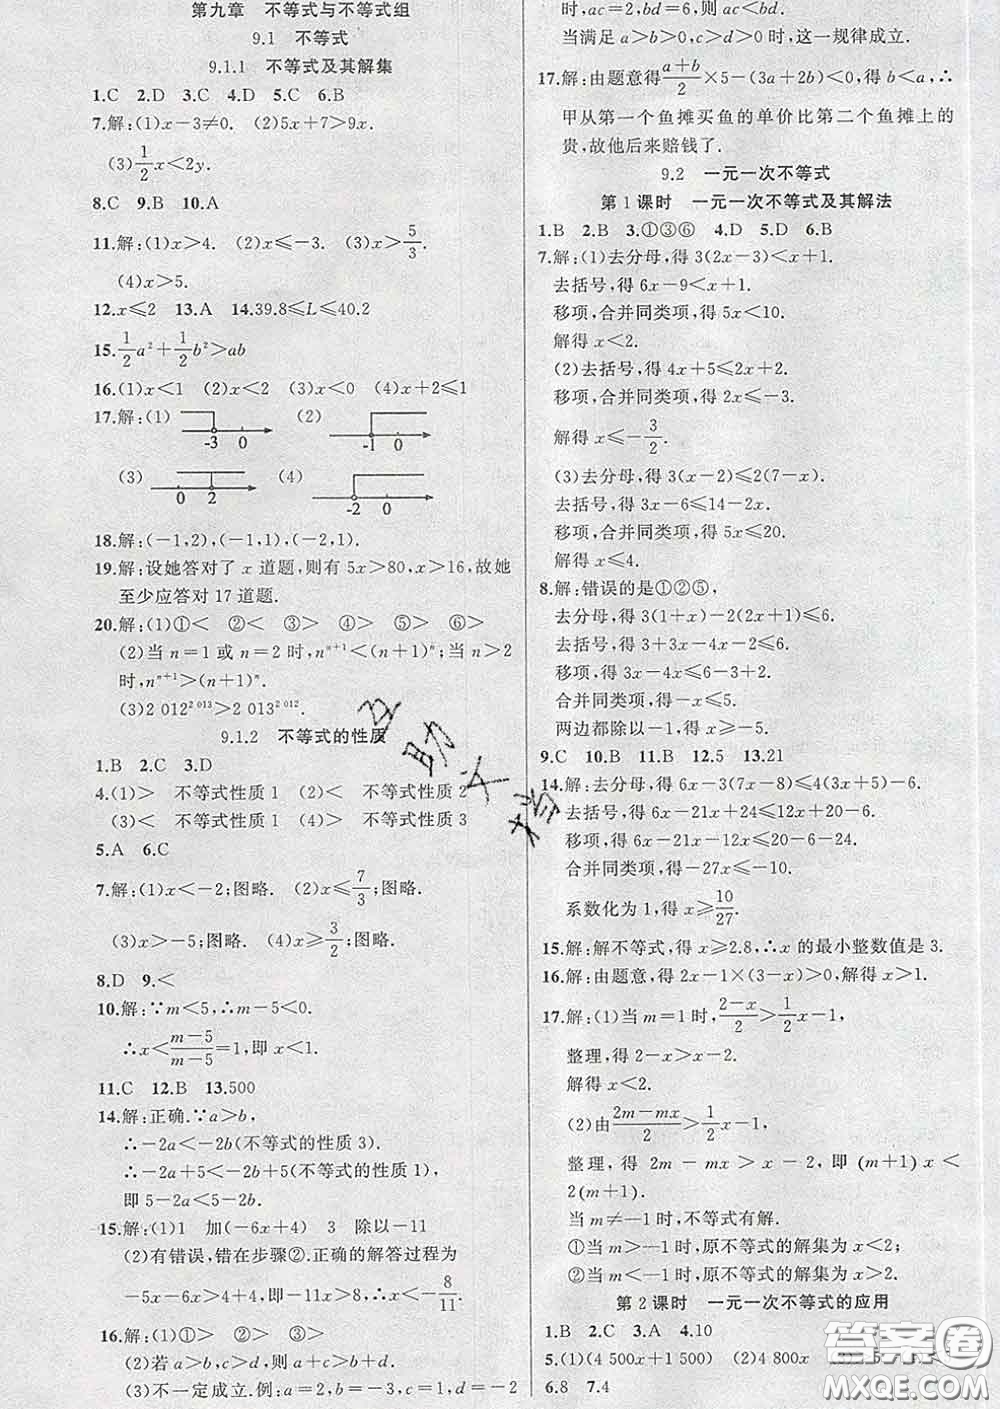 第九章 不等式与不等式组
9.1 不等式
9.1.1 不等式及其解集
1.C 2.D 3.C 4.D 5.C 6.B
7.解:(1)x−3≠0. (2)5x+7>9x.
(3)1/2x<2y.
8.C 9.B 10.A
11.解:(1)x>4. (2)x≤−3. (3)x>5/3.
(4)x>5.
12.x≤2 13.A 14.39.8≤L≤40.2
15.1/2a²+1/2b²>ab
16.(1)x<1 (2)x<2 (3)x<0 (4)x+2≤1
17.解:(1) -3 0 (2) -1 0
(3) 0 2 (4) -2 0
18.解:(−1,2),(−1,1),(−2,1).
19.解:设她答对了 x 道题,则有 5x>80,x>16,故她
至少应答对 17 道题.
20.解:(1)①< ②< ③> ④> ⑤> ⑥>
(2)当 n=1 或 n=2 时,nⁿ⁺¹<(n+1)ⁿ;当 n>2
时,nⁿ⁺¹>(n+1)ⁿ.
(3)2 012^2 013>2 013^2 012.
9.1.2 不等式的性质
1.B 2.C 3.D
4.(1)> 不等式性质 1 (2)< 不等式性质 2
(3)< 不等式性质 1 (4)> 不等式性质 3
5.A 6.C
7.解:(1)x<−2;图略. (2)x≤7/3;图略.
(3)x>−5;图略. (4)x≥3/2;图略.
8.D 9.<
10.解:∵m<5,∴m−5<0.
∴x<(m−5)/(m−5)=1,即 x<1.
11.C 12.B 13.500
14.解:正确.∵a>b,
∴−2a<−2b(不等式的性质 3).
∴−2a+5<−2b+5(不等式的性质 1),
即 5−2a<5−2b.
15.解:(1)1 加(−6x+4) 3 除以−11
(2)有错误,错在步骤②.正确的解答过程为
−5x−6x>4+4,即−11x>8,x<−8/11.
16.解:(1)①> ②> ③>
(2)若 a>b,c>d,则 a+c>b+d.
(3)不一定成立.例:a=2,b=−3,c=1,d=−2
时,ac=2,bd=6,则 ac<bd.
当满足 a>b>0,c>d>0时,这一规律成立.
17.解:由题意得(a+b)/2×5−(3a+2b)<0,得 b<a,∴
甲从第一个鱼摊买鱼的单价比第二个鱼摊上的
贵,故他后来赔钱了.
9.2 一元一次不等式
第 1 课时 一元一次不等式及其解法
1.B 2.B 3.①③⑥ 4.D 5.D 6.B
7.解:(1)去分母,得 3(2x−3)<x+1.
去括号,得 6x−9<x+1.
移项,合并同类项,得 5x<10.
解得 x<2.
(2)去括号,得 4x+5≤2x+2.
移项,合并同类项,得 2x≤−3.
解得 x≤−3/2.
(3)去分母,得 3(x−2)≤2(7−x).
去括号,得 3x−6≤14−2x.
移项,合并同类项,得 5x≤20.
解得 x≤4.
8.解:错误的是①②⑤,
去分母,得 3(1+x)−2(2x+1)≤6.
去括号,得 3+3x−4x−2≤6.
移项,得 3x−4x≤6−3+2.
合并同类项,得−x≤5.
两边都除以−1,得 x≥−5.
9.C 10.B 11.B 12.5 13.21
14.解:去分母,得 6x−3(7x−8)≤4(3x+5)−6.
去括号,得 6x−21x+24≤12x+20−6.
移项,得 6x−21x−12x≤20−6−24.
合并同类项,得−27x≤−10.
系数化为 1,得 x≥10/27.
15.解:解不等式,得 x≥2.8,∴x 的最小整数值是 3.
16.解:由题意,得 2x−1×(3−x)>0,解得 x>1.
17.解:(1)当 m=1 时,(2−x)/2>1/2x−1,
整理,得 2−x>x−2.
解得 x<2.
(2)由(2m−mx)/2>1/2x−1,
整理,得 2m−mx>x−2,即 (m+1)x<
2(m+1).
当 m≠−1 时,不等式有解.
①当 m>−1 时,原不等式的解集为 x<2;
②当 m<−1 时,原不等式的解集为 x>2.
第 2 课时 一元一次不等式的应用
1.B 2.C 3.A 4.10
5.(1)(4 500x+1 500) (2)4 800x
6.8 7.4
互助文档
答案圈
MXQE.COM